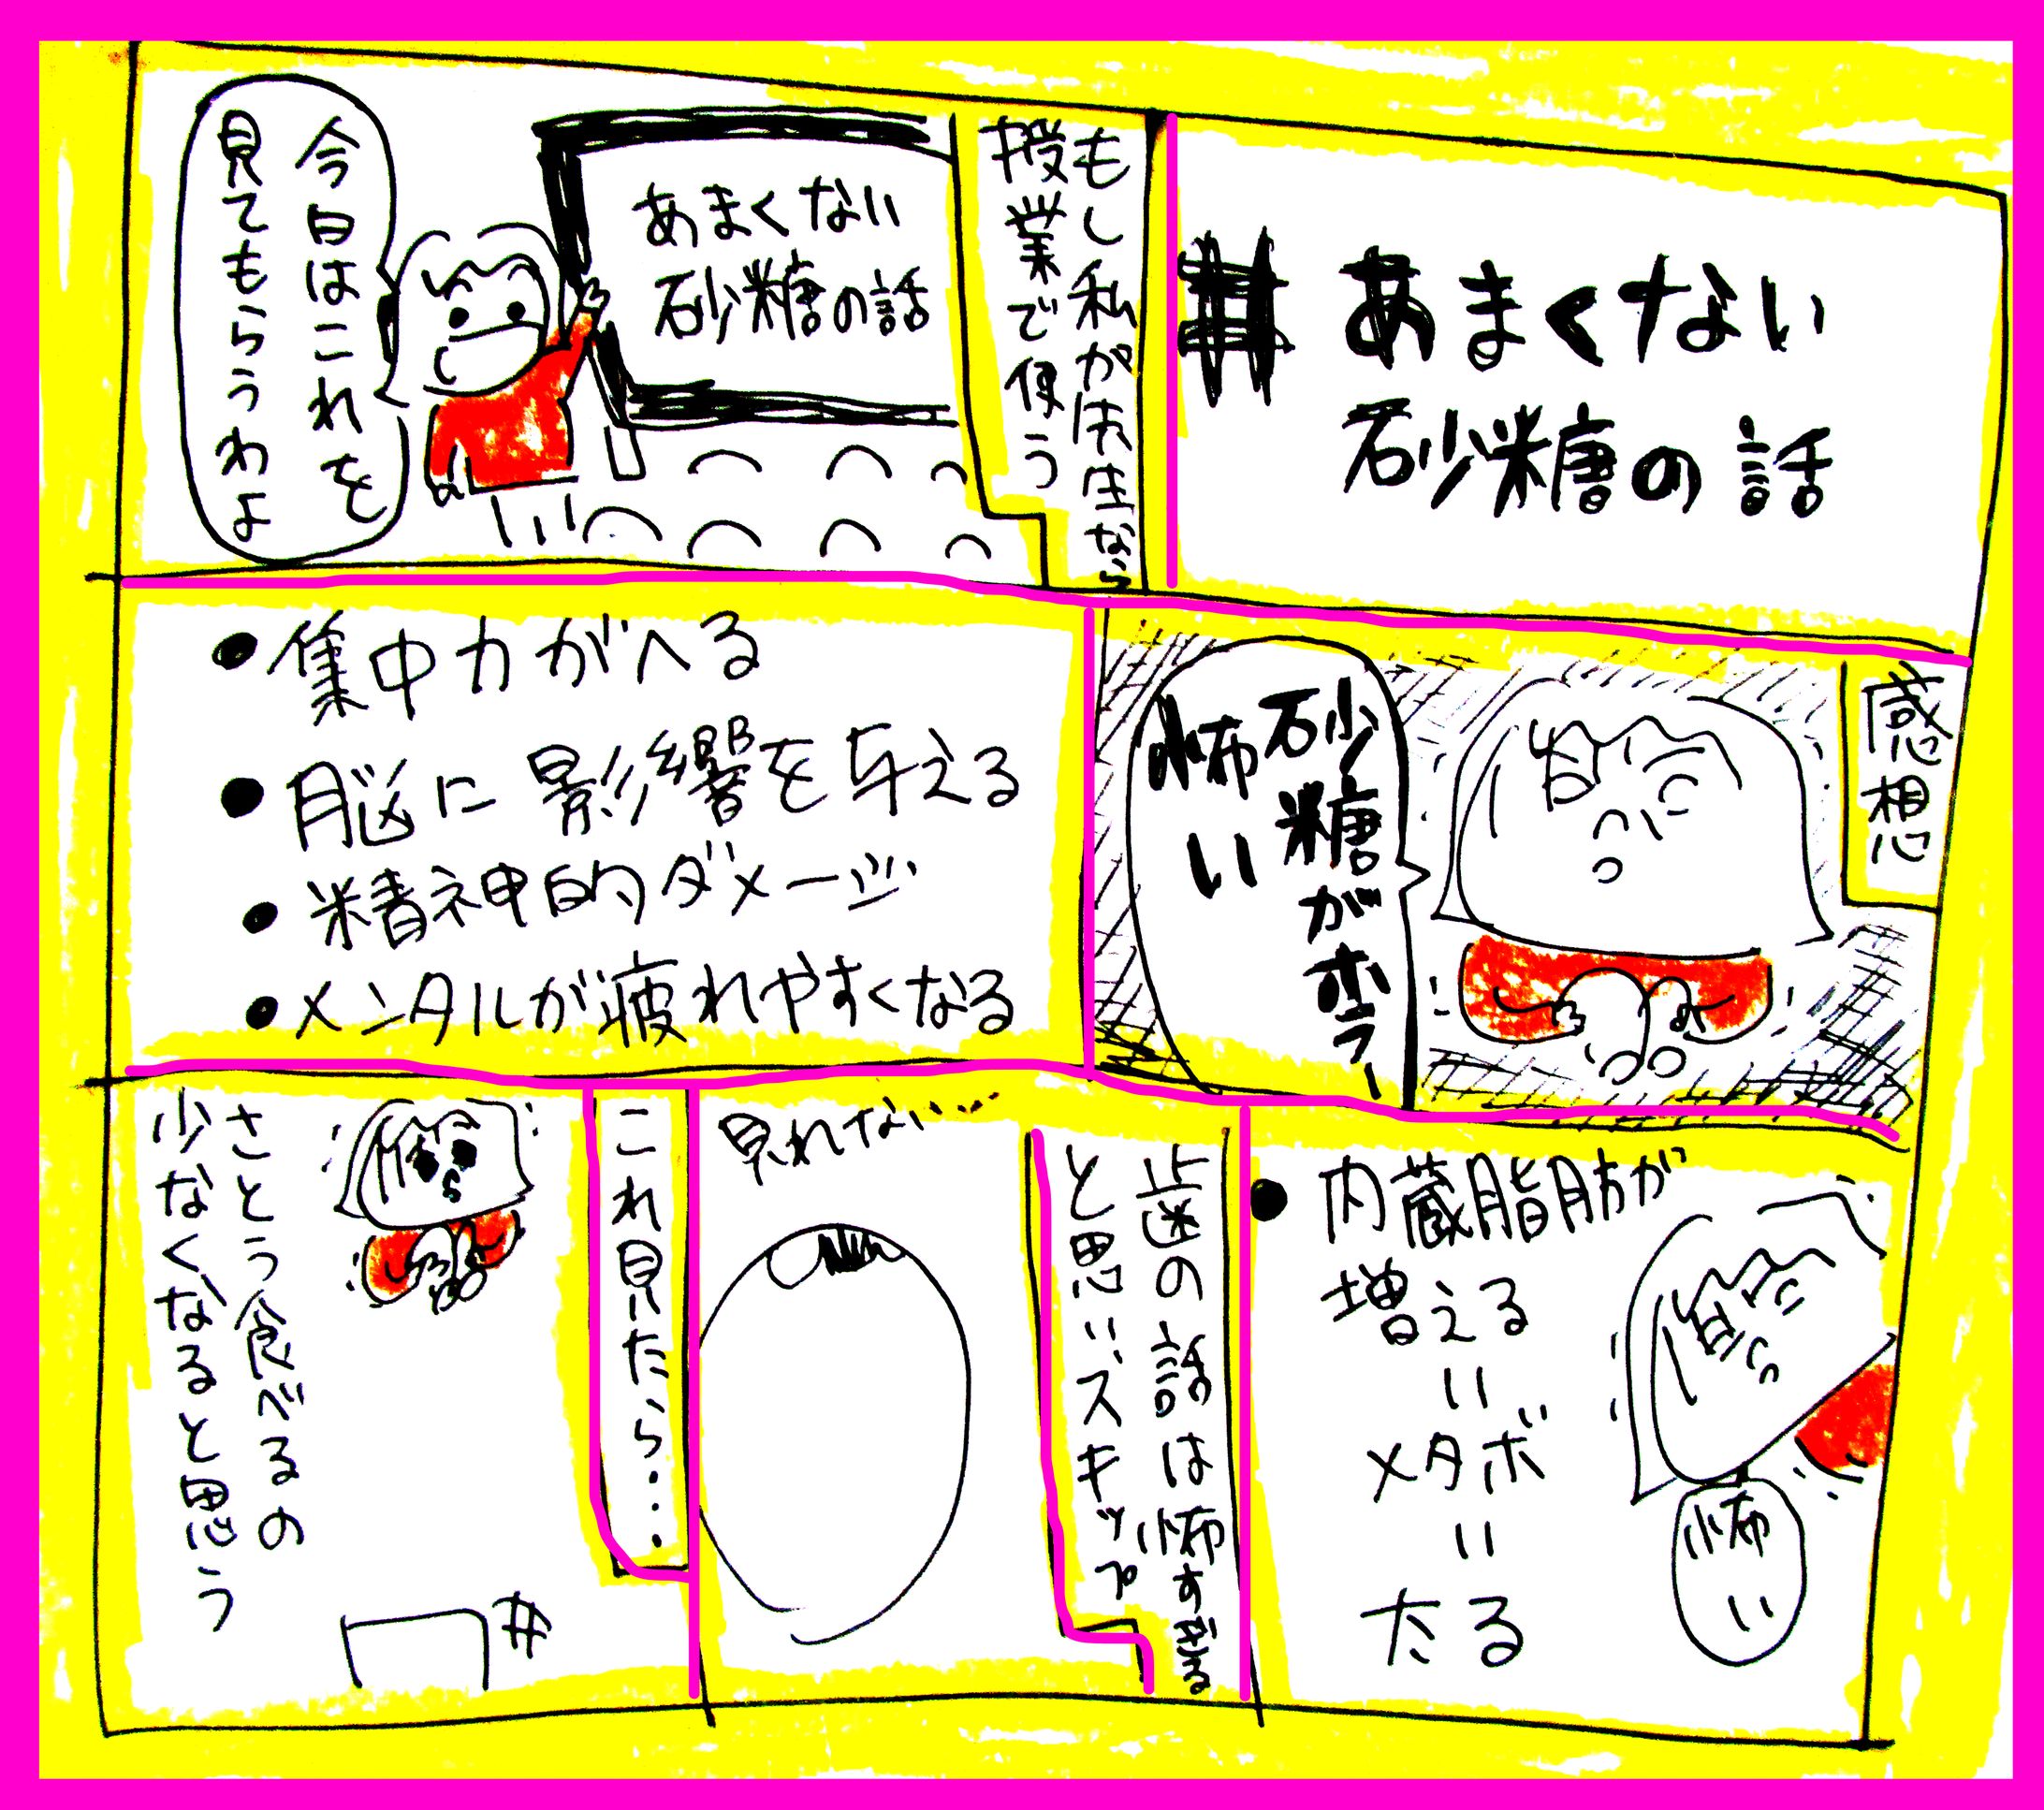 # あまくない
砂糖の話
もし私が先生なら
授業で使う
あまくない
砂糖の話
今日はこれを
見てもらうわよ
感想
砂糖がホラー
怖い
●集中力がへる
●脳に影響を与える
●精神的ダメージ
●メンタルが疲れやすくなる
●内蔵脂肪が
増える
＝
メタボ
＝
たる
怖い
歯の話は怖すぎる
と思いスキップ
見れない…
これ見たら…
さとう食べるの
少なくなると思う
#